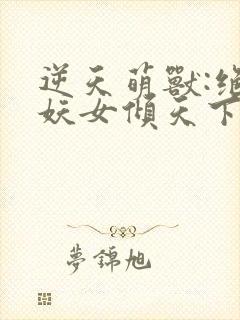 逆天萌獸:絕
妖女傾天下
夢錦旭